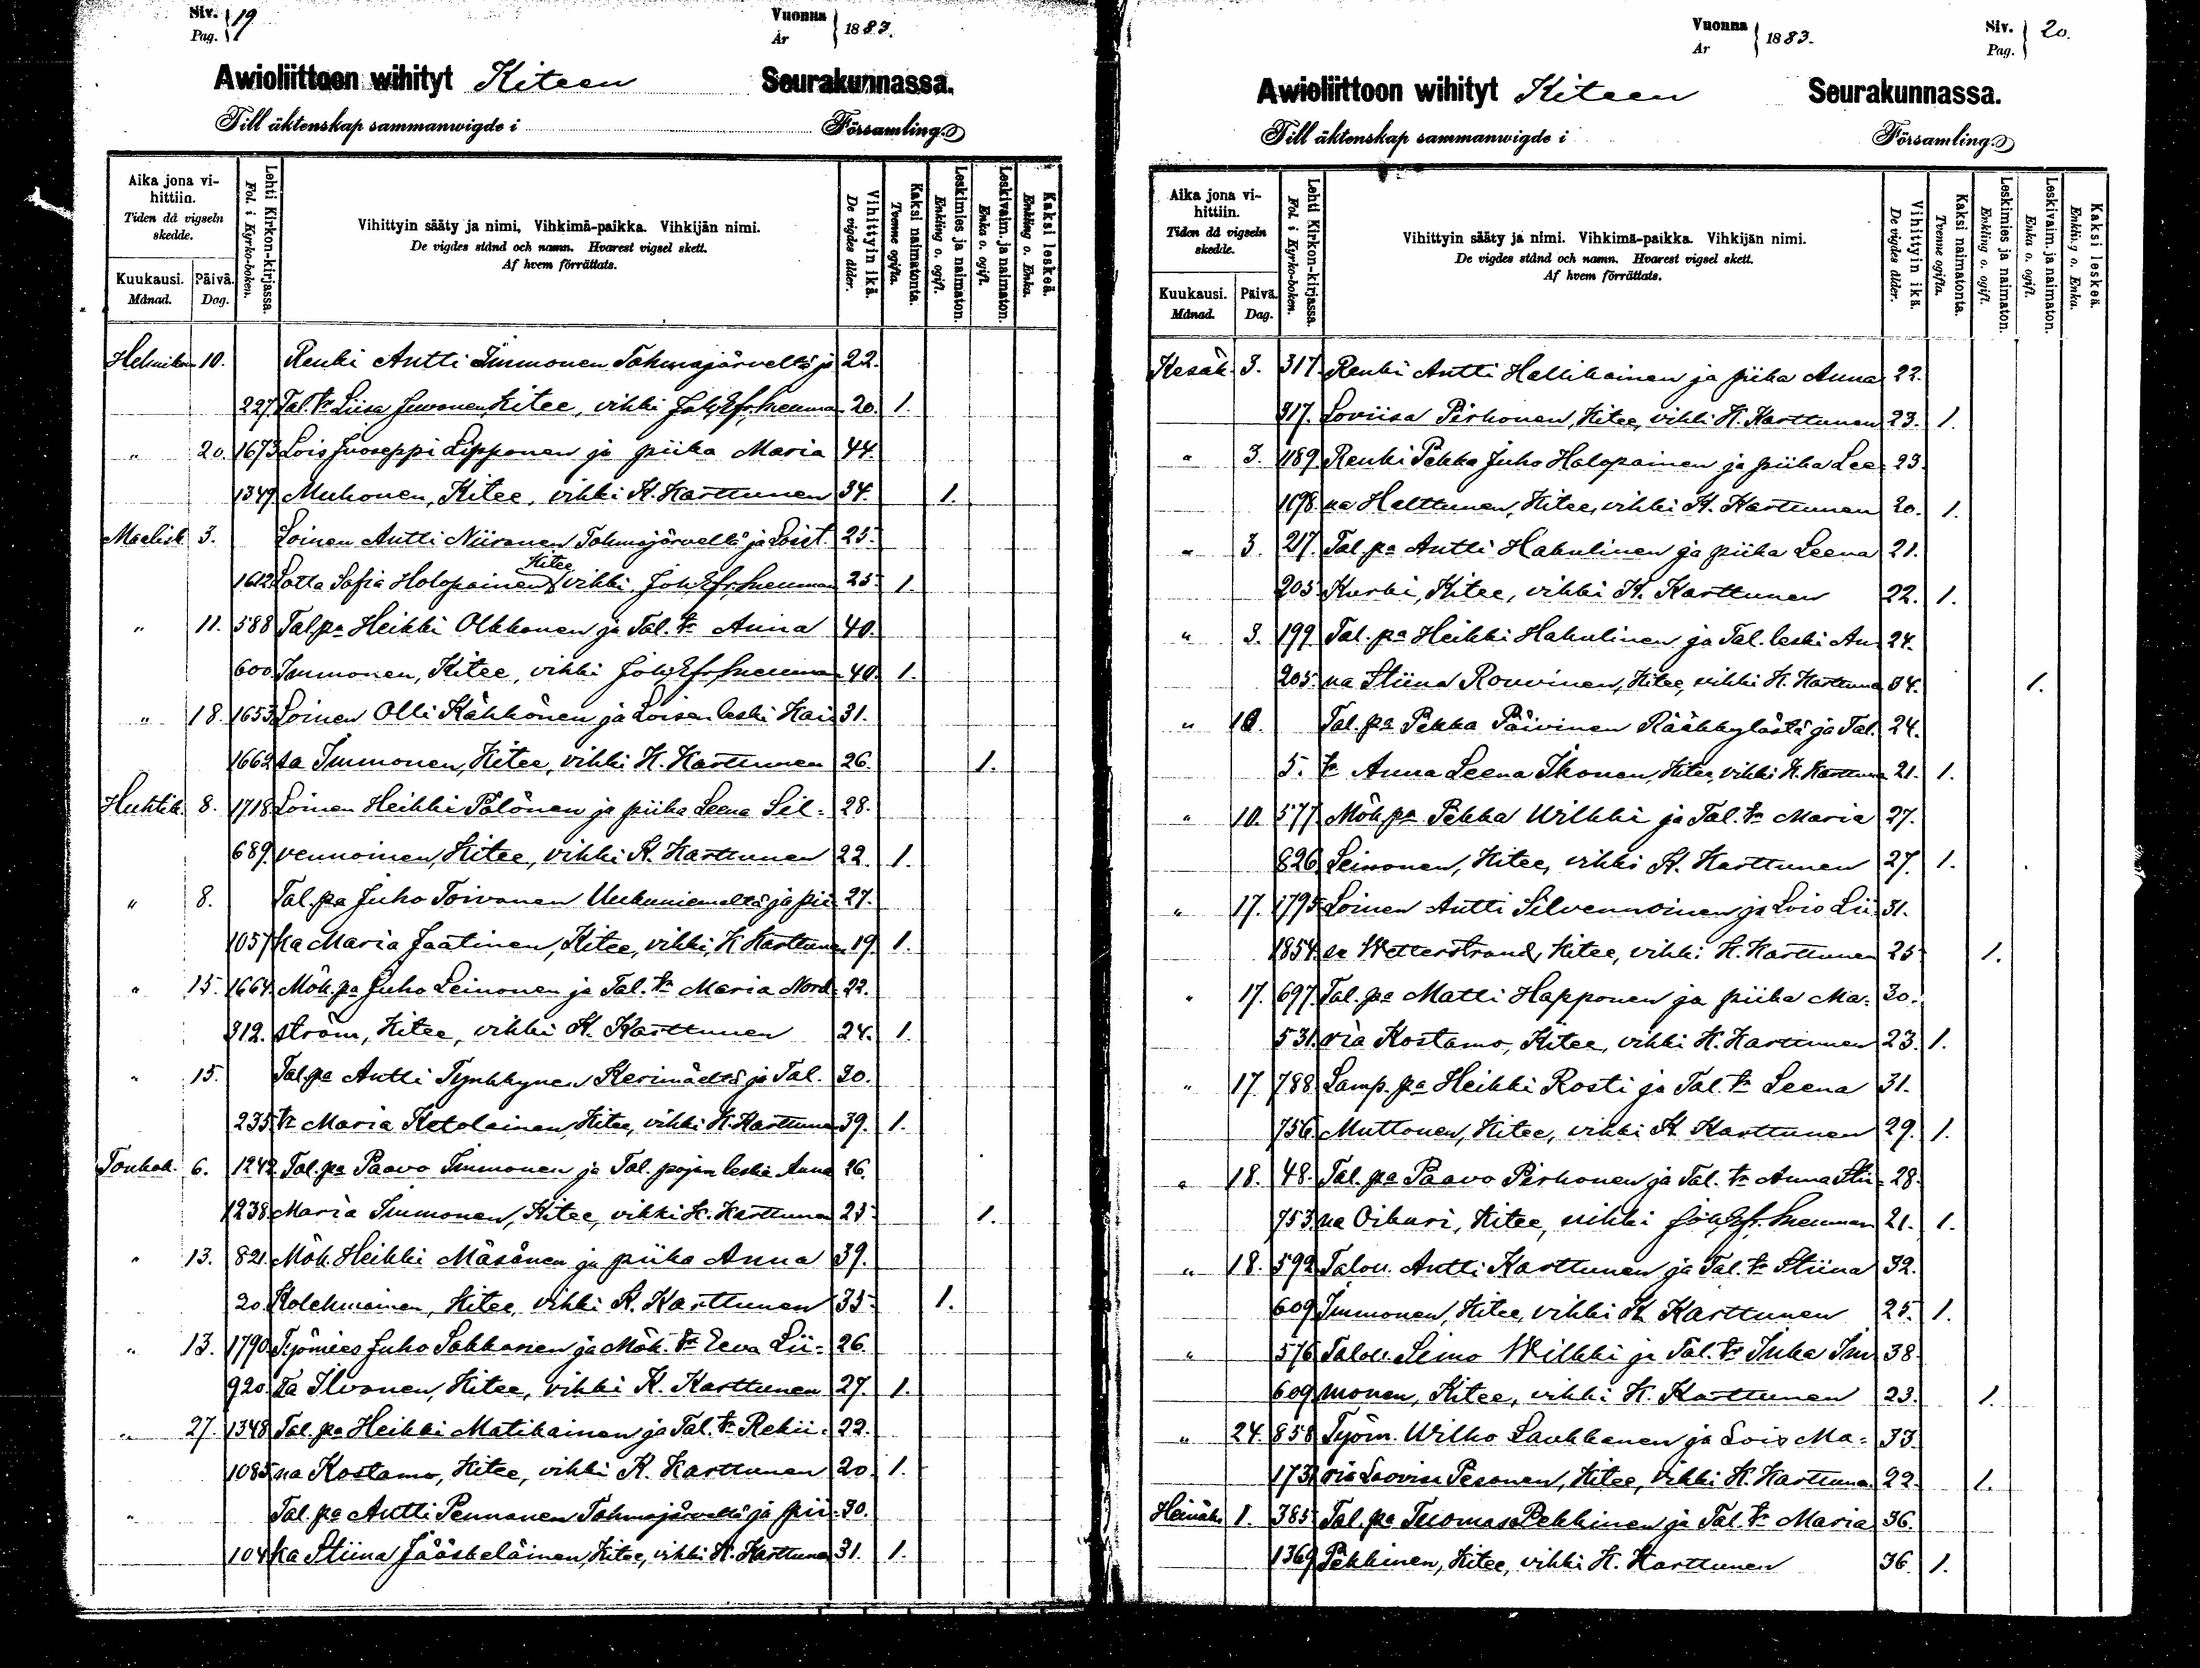 Siv. Pag. } 19
Vuonna År } 1883.
Awioliittoon wihityt Kiteen Seurakunnassa.
Till äktenskap sammanwigde i Församling.
Aika jona vihittiin. Tiden då vigseln skedde.
Kuukausi. Månad.
Päivä. Dag.
Lehti Kirkon-kirjassa. Fol. i Kyrko-boken.
Vihittyin sääty ja nimi, Vihkimä-paikka. Vihkijän nimi.
De vigdes stånd och namn. Hvarest vigsel skett.
Af hvem förrättats.
Vihittyin ikä. De vigdes ålder.
Kaksi naimatonta. Tvenne ogifta.
Leskimies ja naimaton. Enkling o. ogift.
Leskivaim. ja naimaton. Enka o. ogift.
Kaksi leskeä. Enkling o. Enka.
Helmikuu 10. Renki Antti Immonen Tohmajärveltä ja 22.
227 Tal. tr Liisa Juvonen Kitee, vihki Joh. Efr. Sneuman 20. 1.
" 20. 1673 Lois Juoseppi Lipponen ja piika Maria 44.
1349 Muhonen, Kitee, vihki K. Karttunen 34. 1.
Maalisk. 3. Loinen Antti Niiranen Tohmajärveltä ja Loist. 25.
1612 Lotta Sofia Holopainen Kitee vihki Joh. Efr. Sneuman 25. 1.
" 11. 588 Tal. pa Heikki Olkkonen ja Tal. tr Anna 40.
600 Immonen, Kitee, vihki Joh. Efr. Sneuman 40. 1.
" 18. 1653 Loinen Olli Kähkönen ja Loisen leski Kai 31.
1662 sa Immonen, Kitee, vihki K. Karttunen 26. 1.
Huhtik. 8. 1718 Loinen Heikki Pölönen ja piika Leena Sil- 28.
689. vennoinen, Kitee, vihki K. Karttunen 22. 1.
" 8. Tal. pa Juho Toivanen Uukuniemeltä ja pii 27.
1057 ka Maria Jaatinen, Kitee, vihki K Karttunen 19. 1.
" 15. 1664 Mök. pa Juho Leinonen ja Tal. tr Maria Nord- 22.
312. ström, Kitee, vihki K. Karttunen 24. 1.
" 15. Tal. pa Antti Tynkkynen Kerimäeltä ja Tal. 30.
235 tr Maria Ketolainen, Kitee, vihki K. Karttunen 39. 1.
Toukok. 6. 1242 Tal. pa Paavo Immonen ja Tal. pojan leski Anna 26.
1238 Maria Immonen, Kitee, vihki K. Karttunen 25. 1.
" 13. 821. Mök. Heikki Mäsänen ja piika Anna 39.
20. Kolehmainen, Kitee, vihki K. Karttunen 35. 1.
" 13. 1790 Työmies Juho Sakkanen ja Mök. tr Eeva Lii- 26.
920. sa Ilvonen, Kitee, vihki K. Karttunen 27. 1.
" 27. 1348 Tal. pa Heikki Matikainen ja Tal. tr Rekii- 22.
1085 na Kostamo, Kitee, vihki K. Karttunen 20. 1.
" Tal. pa Antti Pennanen Tohmajärveltä ja pii- 30.
104 ka Stiina Jääskeläinen, Kitee, vihki K. Karttunen 31. 1.
Vuonna År } 1883.
Siv. Pag. } 20.
Awioliittoon wihityt Kiteen Seurakunnassa.
Till äktenskap sammanwigde i Församling.
Aika jona vihittiin. Tiden då vigseln skedde.
Kuukausi. Månad.
Päivä. Dag.
Lehti Kirkon-kirjassa. Fol. i Kyrko-boken.
Vihittyin sääty ja nimi. Vihkimä-paikka. Vihkijän nimi.
De vigdes stånd och namn. Hvarest vigsel skett.
Af hvem förrättats.
Vihittyin ikä. De vigdes ålder.
Kaksi naimatonta. Tvenne ogifta.
Leskimies ja naimaton. Enkling o. ogift.
Leskivaim. ja naimaton. Enka o. ogift.
Kaksi leskeä. Enkling o. Enka.
Kesäk. 3. 317. Renki Antti Hallikainen ja piika Anna 22.
317. Loviisa Pirhonen, Kitee, vihki K. Karttunen 23. 1.
" 3. 1189. Renki Pekka Juho Holopainen ja piika Lee 23.
1698. na Halttunen, Kitee, vihki K. Karttunen 20. 1.
" 3. 217. Tal. pa Antti Hakulinen ja piika Leena 21.
205. Kurki, Kitee, vihki K. Karttunen 22. 1.
" 3. 199. Tal. pa Heikki Hakulinen ja Tal. leski An 24.
205. na Stiina Rouvinen, Kitee, vihki K. Karttunen 34. 1.
" 10. Tal. pa Pekka Päivinen Rääkkylästä ja Tal. 24.
5. tr Anna Leena Ikonen, Kitee, vihki K. Karttunen 21. 1.
" 10. 577. Mök. pa Pekka Wilkki ja Tal. tr Maria 27.
826. Leinonen, Kitee, vihki K. Karttunen 27. 1.
" 17. 1795 Loinen Antti Silvennoinen ja Lois Lii 31.
1854. sa Wetterstrand, Kitee, vihki K. Karttunen 25. 1.
" 17. 697. Tal. pa Matti Happonen ja piika Ma- 30.
531. ria Kostamo, Kitee, vihki K. Karttunen 23. 1.
" 17. 788 Lamp. pa Heikki Rosti ja Tal. tr Leena 31.
756. Muttonen, Kitee, vihki K Karttunen 29. 1.
" 18. 48. Tal. pa Paavo Pirhonen ja Tal. tr Anna Stii- 28.
753. na Oikuri, Kitee, vihki Joh. Efr. Sneuman 21. 1.
" 18. 592 Talon. Antti Karttunen ja Tal. tr Stiina 32.
609 Immonen, Kitee, vihki K Karttunen 25. 1.
" 576 Talon. Simo Wilkki ja Tal. tr Inka Im 38.
609 monen, Kitee, vihki K. Karttunen 23. 1.
" 24. 858 Työm. Wilho Laukkanen ja Lois Ma- 33.
173 ria Loovisa Pesonen, Kitee, vihki K. Karttunen 22. 1.
Heinäk. 1. 385. Tal. pa Tuomas Pekkinen ja Tal. tr Maria 36.
1369 Pekkinen, Kitee, vihki K. Karttunen 36. 1.